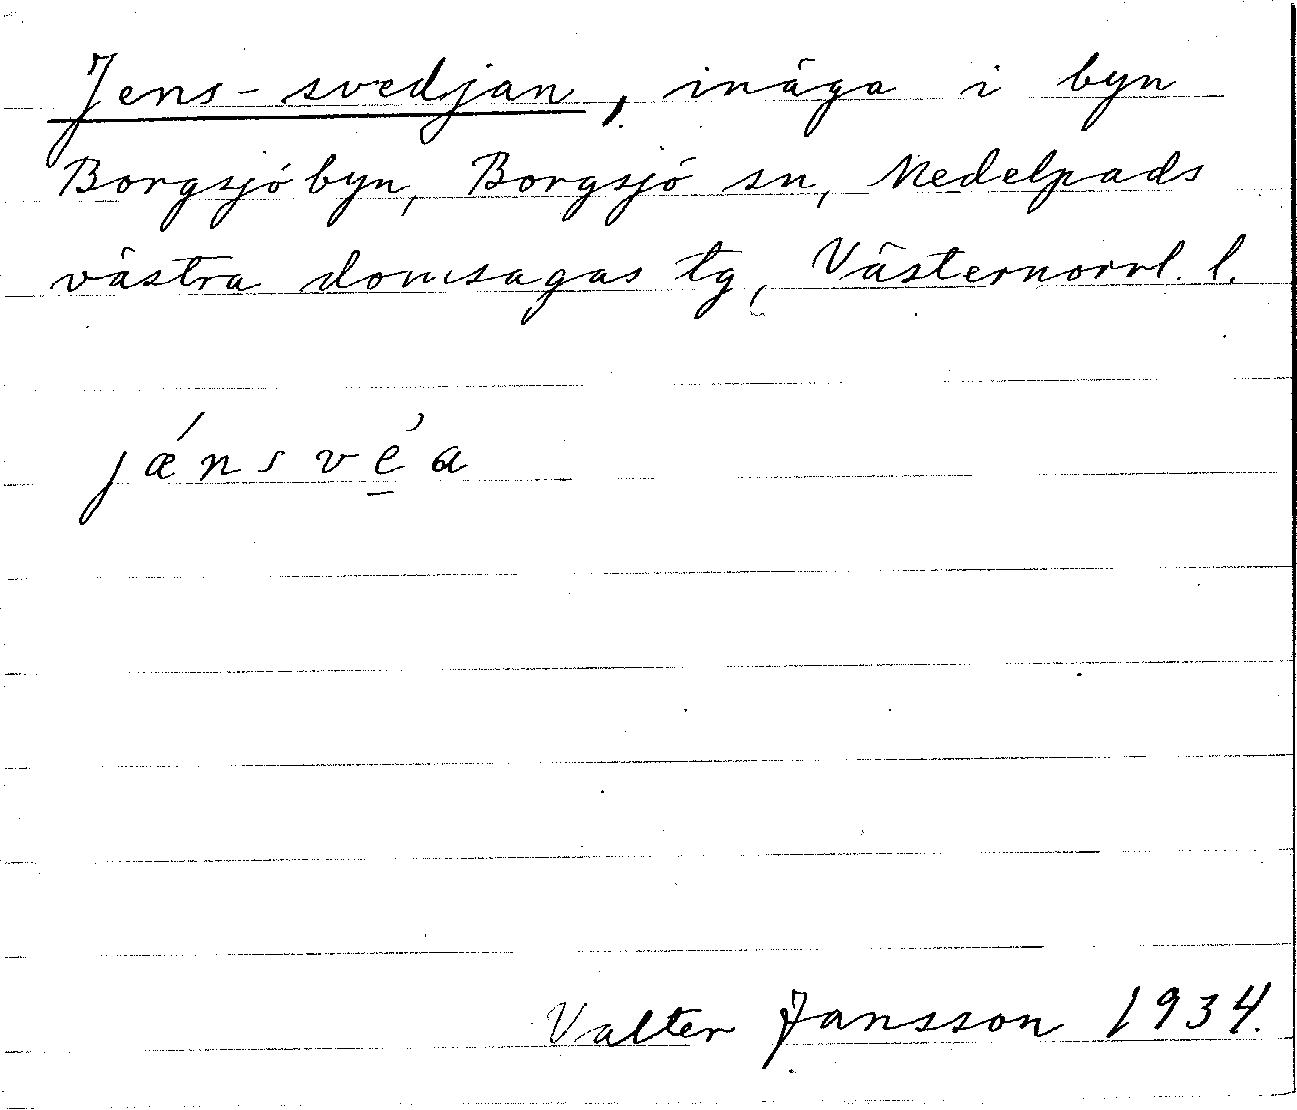 Jens-svedjan, inäga i byn
Borgsjöbyn, Borgsjö sn, Medelpads
västra domsagas tg, Västernorrl. l.
jǽnsvè̲a
Valter Jansson 1934.